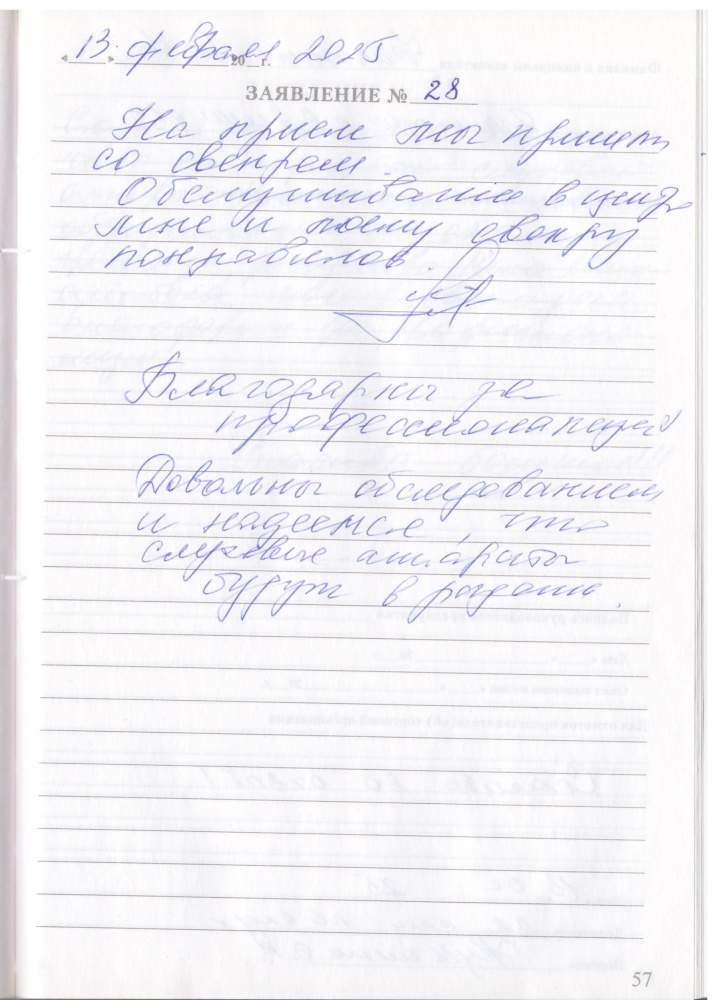 «13» февраля 2025 20 г.
ЗАЯВЛЕНИЕ № 28
На прием мы пришли
со свекрем.
Обслуживание в центре
мне и моему свекру
понравилось.
Благодарны за
профессионализм!
Довольны обследованием
и надеемся, что
слуховые аппараты
будут в радость.
57